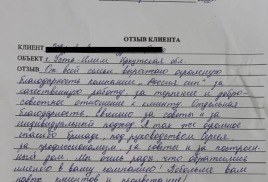 ОТЗЫВ КЛИЕНТА
КЛИЕНТ
ОБЪЕКТ г. Усть-Илим Иркутская обл.
ОТЗЫВ "От всей семьи выражаю огромную
благодарность компании "Россия сип" за
качественную работу, за терпение и добро-
совестное отношение к клиенту. Отдельная
благодарность за советы и
индивидуальный подход. А так же огромное
спасибо бригаде под руководством Сергея
за профессионализм, за советы и за построен-
ный дом. Мы очень рады что обратились
именно в вашу компанию! Побольше вам
новых клиентов и процветания!